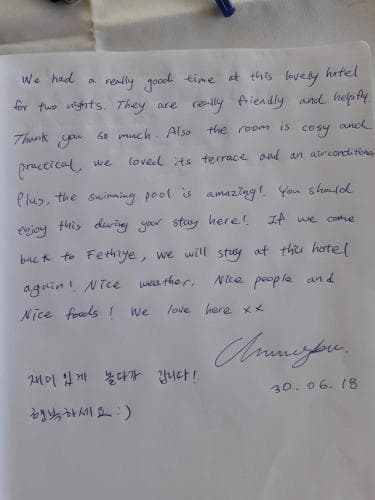 We had a really good time at this lovely hotel
for two nights. They are really friendly and helpful.
Thank you so much. Also the room is cosy and
practical, we loved its terrace and an airconditioner
Plus, the swimming pool is amazing! You should
enjoy this during your stay here! If we come
back to Fethiye, we will stay at this hotel
again! Nice weather. Nice people and
Nice foods! We love here xx
재미있게 놀다가 갑니다!
30.06.18
행복하세요 :)